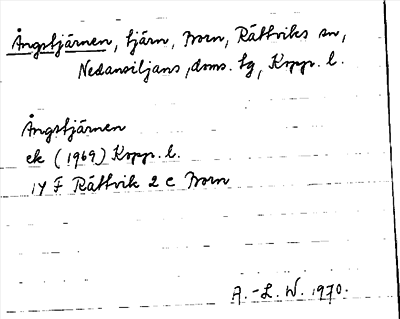 Ångstjärnen, tjärn, Born, Rättviks sn,
Nedansiljans doms. tg, Kopp. l.
Ångstjärnen
ek (1969) Kopp. l.
14 F Rättvik 2 c Born
A.-L. W. 1970.